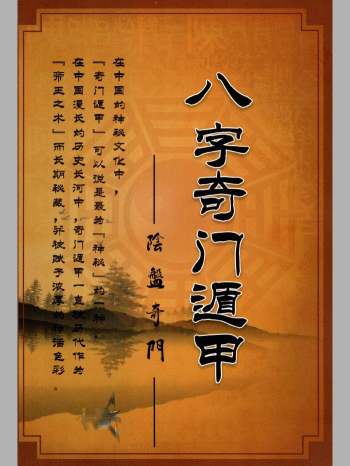 八字奇门遁甲
陰盤奇門
在中国的神秘文化中,
『奇门遁甲』可以说是最为『神秘』的一种。
在中国漫长的历史长河中,奇门遁甲一直被历代作为
『帝王之术』而长期秘藏,并被赋予浓厚的神话色彩。